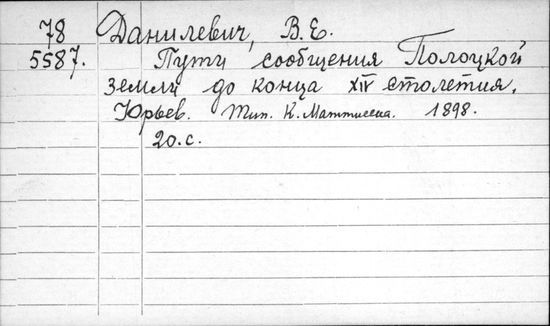 78 Данилевич, В.Е.
5587. Пути сообщения Полоцкой
земли до конца XIV столетия.
Юрьев. Тип. К. Маттисена. 1898.
20.с.